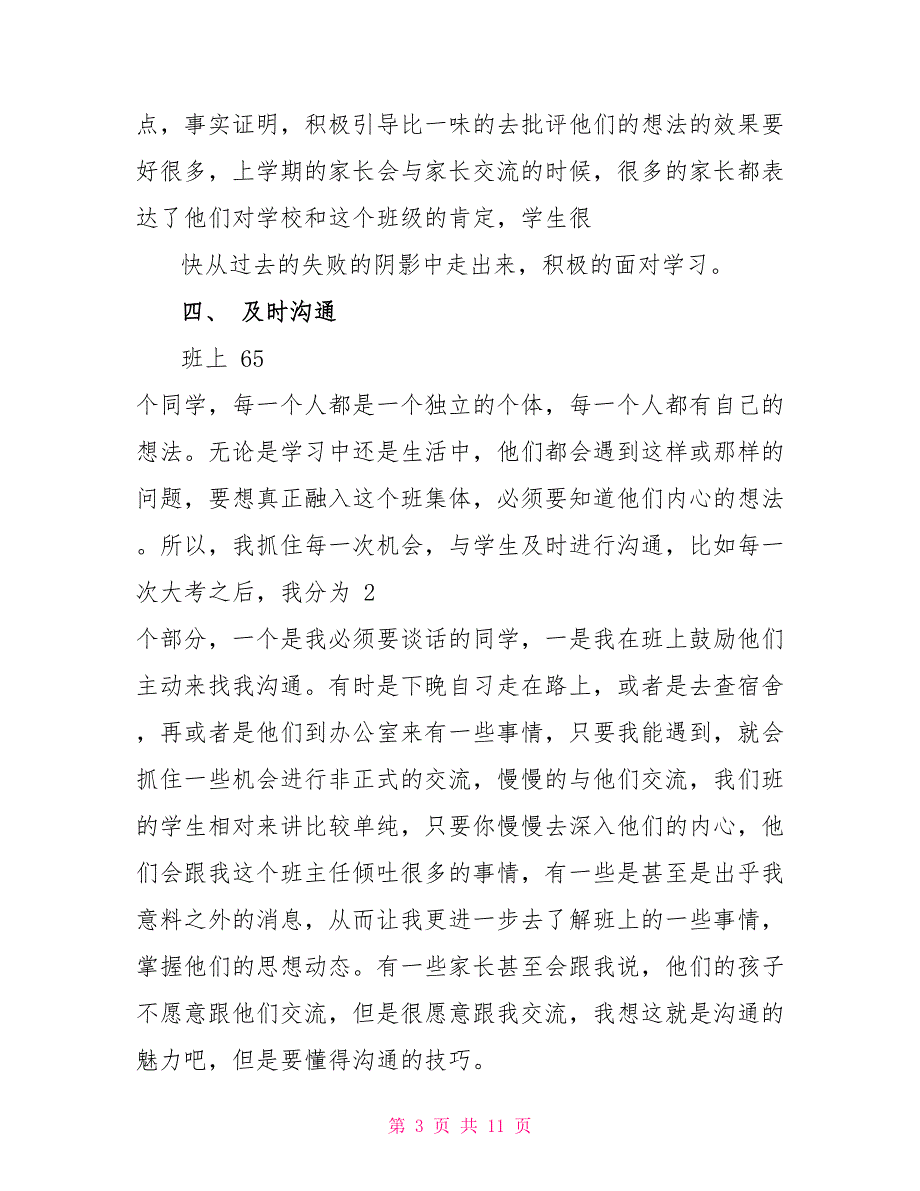 点，事实证明，积极引导比一味的去批评他们的想法的效果要
好很多，上学期的家长会与家长交流的时候，很多的家长都表
达了他们对学校和这个班级的肯定，学生很
快从过去的失败的阴影中走出来，积极的面对学习。
四、 及时沟通
班上 65
个同学，每一个人都是一个独立的个体，每一个人都有自己的
想法。无论是学习中还是生活中，他们都会遇到这样或那样的
问题，要想真正融入这个班集体，必须要知道他们内心的想法
。所以，我抓住每一次机会，与学生及时进行沟通，比如每一
次大考之后，我分为 2
个部分，一个是我必须要谈话的同学，一是我在班上鼓励他们
主动来找我沟通。有时是下晚自习走在路上，或者是去查宿舍
，再或者是他们到办公室来有一些事情，只要我能遇到，就会
抓住一些机会进行非正式的交流，慢慢的与他们交流，我们班
的学生相对来讲比较单纯，只要你慢慢去深入他们的内心，他
们会跟我这个班主任倾吐很多的事情，有一些是甚至是出乎我
意料之外的消息，从而让我更进一步去了解班上的一些事情，
掌握他们的思想动态。有一些家长甚至会跟我说，他们的孩子
不愿意跟他们交流，但是很愿意跟我交流，我想这就是沟通的
魅力吧，但是要懂得沟通的技巧。
第 3 页 共 11 页